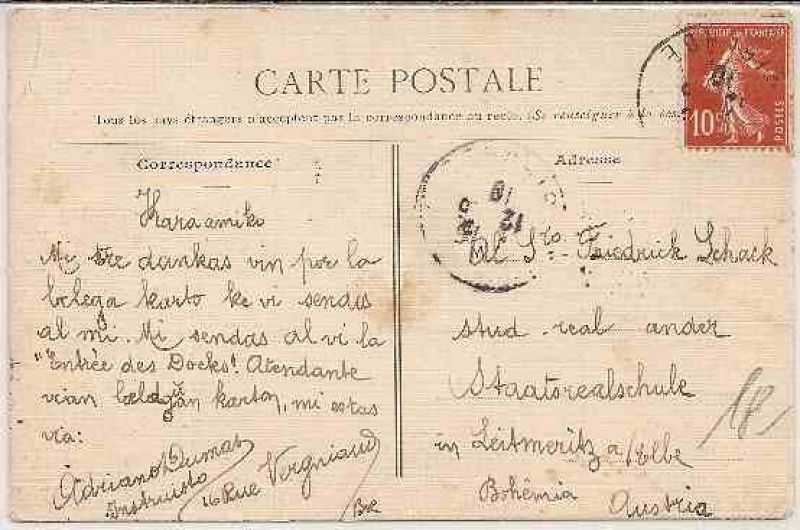 CARTE POSTALE
Tous les pays étrangers n'acceptent pas la correspondance au recto. (Se renseigner à la
Correspondance
Kara amiko
Mi tre dankas vin por la
belega karto ke vi sendas
al mi. Mi sendas al vi la
"Entrée des Docks". Atendante
vian baldaŭan karton, mi estas
via:
Adriano Dumas
Instruisto
16 Rue Vergniaud
Adresse
Al Sro Friedrick Schack
stud. real. ander
Staatsrealschule
in Leitmeritz a/Elbe
Bohêmia
Austria
10c
POSTES